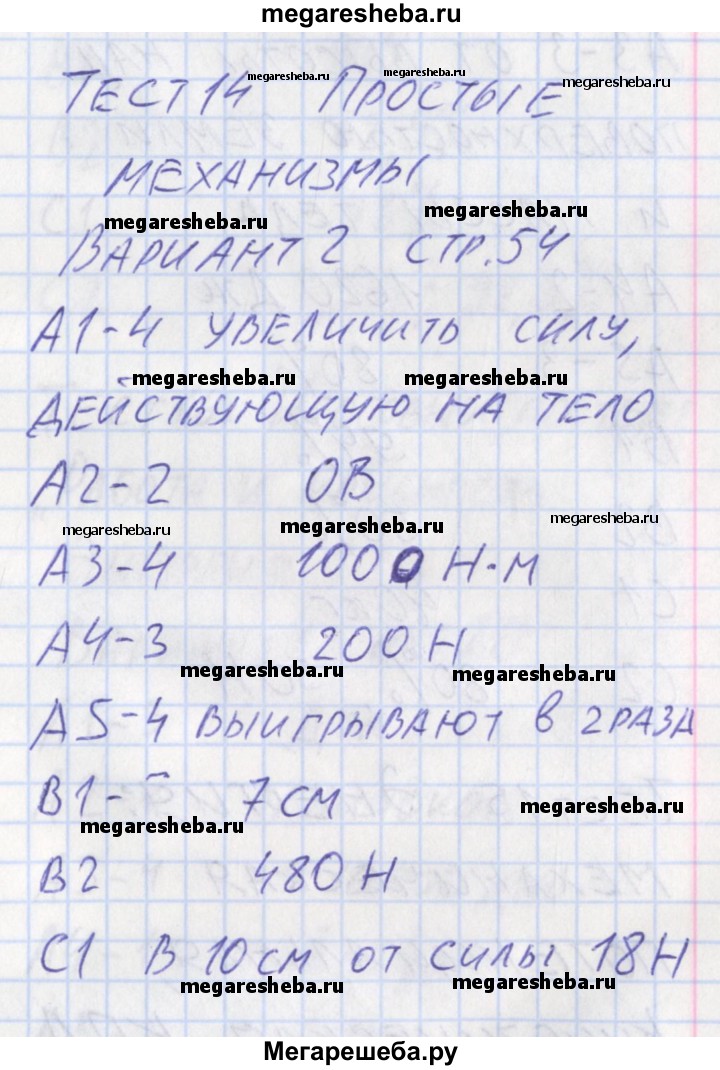 megaresheba.ru
ТЕСТ 14 megaresheba.ru ПРОСТЫЕ megaresheba.ru megaresheba.ru
МЕХАНИЗМЫ
megaresheba.ru megaresheba.ru
ВАРИАНТ 2 СТР. 54
А1-4 УВЕЛИЧИТЬ СИЛУ,
megaresheba.ru megaresheba.ru
ДЕЙСТВУЮЩУЮ НА ТЕЛО
А2-2 ОВ
megaresheba.ru megaresheba.ru megaresheba.ru
А3-4 1000 Н·М
А4-3 200 Н
megaresheba.ru megaresheba.ru
А5-4 ВЫИГРЫВАЮТ В 2 РАЗА
В1- 7 СМ
megaresheba.ru megaresheba.ru
В2 480 Н
С1 В 10 СМ ОТ СИЛЫ 18 Н
megaresheba.ru megaresheba.ru
Мегарешеба.ру